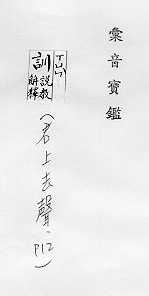 彙音寶鑑
ㄒㄩㄣ
訓
說教
解釋
(君上去聲, P12)